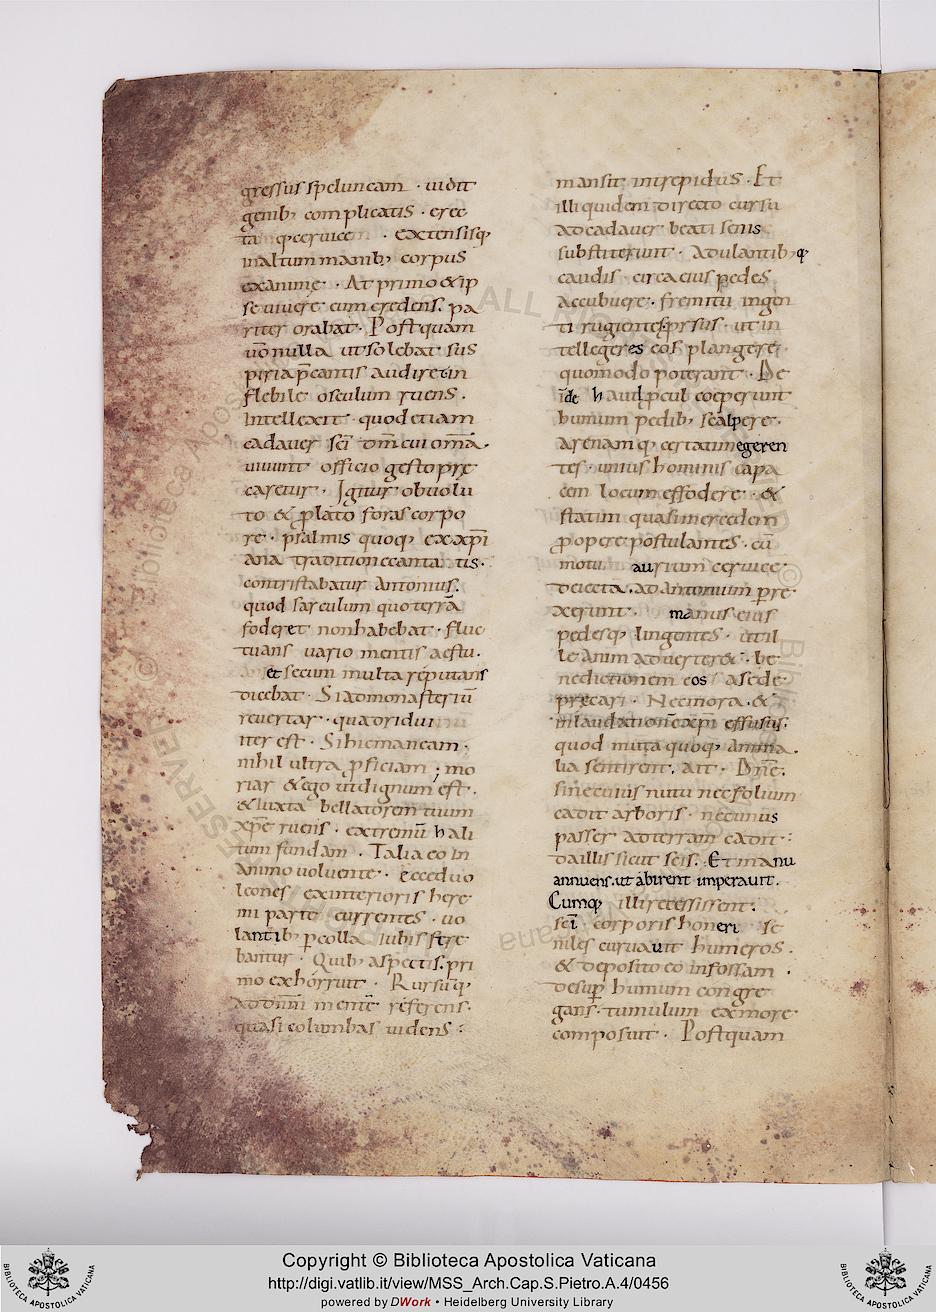 gressus speluncam · uidit
genib; complicatis · erec
ta q; ceruice · extensisq;
inaltum manib; corpus
exanime · At primo & ip
se uiuere eum credens. pa
riter orabat · Postquam
uo nulla ut solebat sus
piria pcantis audiret in
flebile osculum ruens ·
Intellexit · quod etiam
cadauer sci dm cui oma ·
uiuunt officio gesto pre
caretur · Igitur obuolu
to & plato foras corpo
re · psalmis quoq; ex xpi
ana traditione cantatis ·
contristabatur Antonius.
quod sarculum quo terra
foderet non habebat · fluc
tuans uario mentis aestu ·
et secum multa reputans
dicebat · Si ad monasteriu
reuertar · quatridui
iter est · Si hic maneam ·
nihil ultra pficiam ; mo
riar & ego ut dignum est ·
& iuxta bellatorem tuum
xpe ruens · extremu hali
tum fundam · Talia eo in
animo uoluente · ecce duo
leones ex interioris here
mi parte currentes · uo
lantib; p colla iubis fere
bantur · Quib; aspectis. pri
mo exhorruit · Rursusq;
ad dnm mente referens ·
quasi columbas uidens :
mansit intrepidus · Et
illi quidem directo cursu
ad cadauer beati senis
substiterunt · Adulantib; q;
caudis · circa eius pedes
accubuere · fremitu ingen
ti rugientes prsus · ut in
tellegeres eos plangere
quomodo poterant · De
ide haut pcul coeperunt
humum pedib; scalpere ·
Arenamq; certatim egeren
tes · unius hominis capa
cem locum effodere · &
statim quasi mercedem
p opere postulantes · cu
motu aurium ceruice
deiecta · ad antonium pre
xerunt · manus eius
pedesq; lingentes · ut il
le anim aduerteret · be
nedictionem eos a se de
precari · Nec mora · &
in laudatione xpi effusus ·
quod muta quoq; anima
lia sentirent · ait · Dne ·
sine cuius nutu nec folium
cadit arboris · nec unus
passer ad terram cadit :
da illis sicut scis. Et manu
annuens. ut abirent imperauit.
Cumq; illi recessissent.
sci corporis honeri se
niles curuauit humeros ·
& deposito eo in fossam ·
desup humum congre
gans · tumulum ex more
composuit · Postquam
ALL
RESERVED
Biblioteca Apostolica Vaticana
Copyright © Biblioteca Apostolica Vaticana
http://digi.vatlib.it/view/MSS_Arch.Cap.S.Pietro.A.4/0456
powered by DWork • Heidelberg University Library
BIBLIOTECA APOSTOLICA VATICANA
BIBLIOTECA APOSTOLICA VATICANA